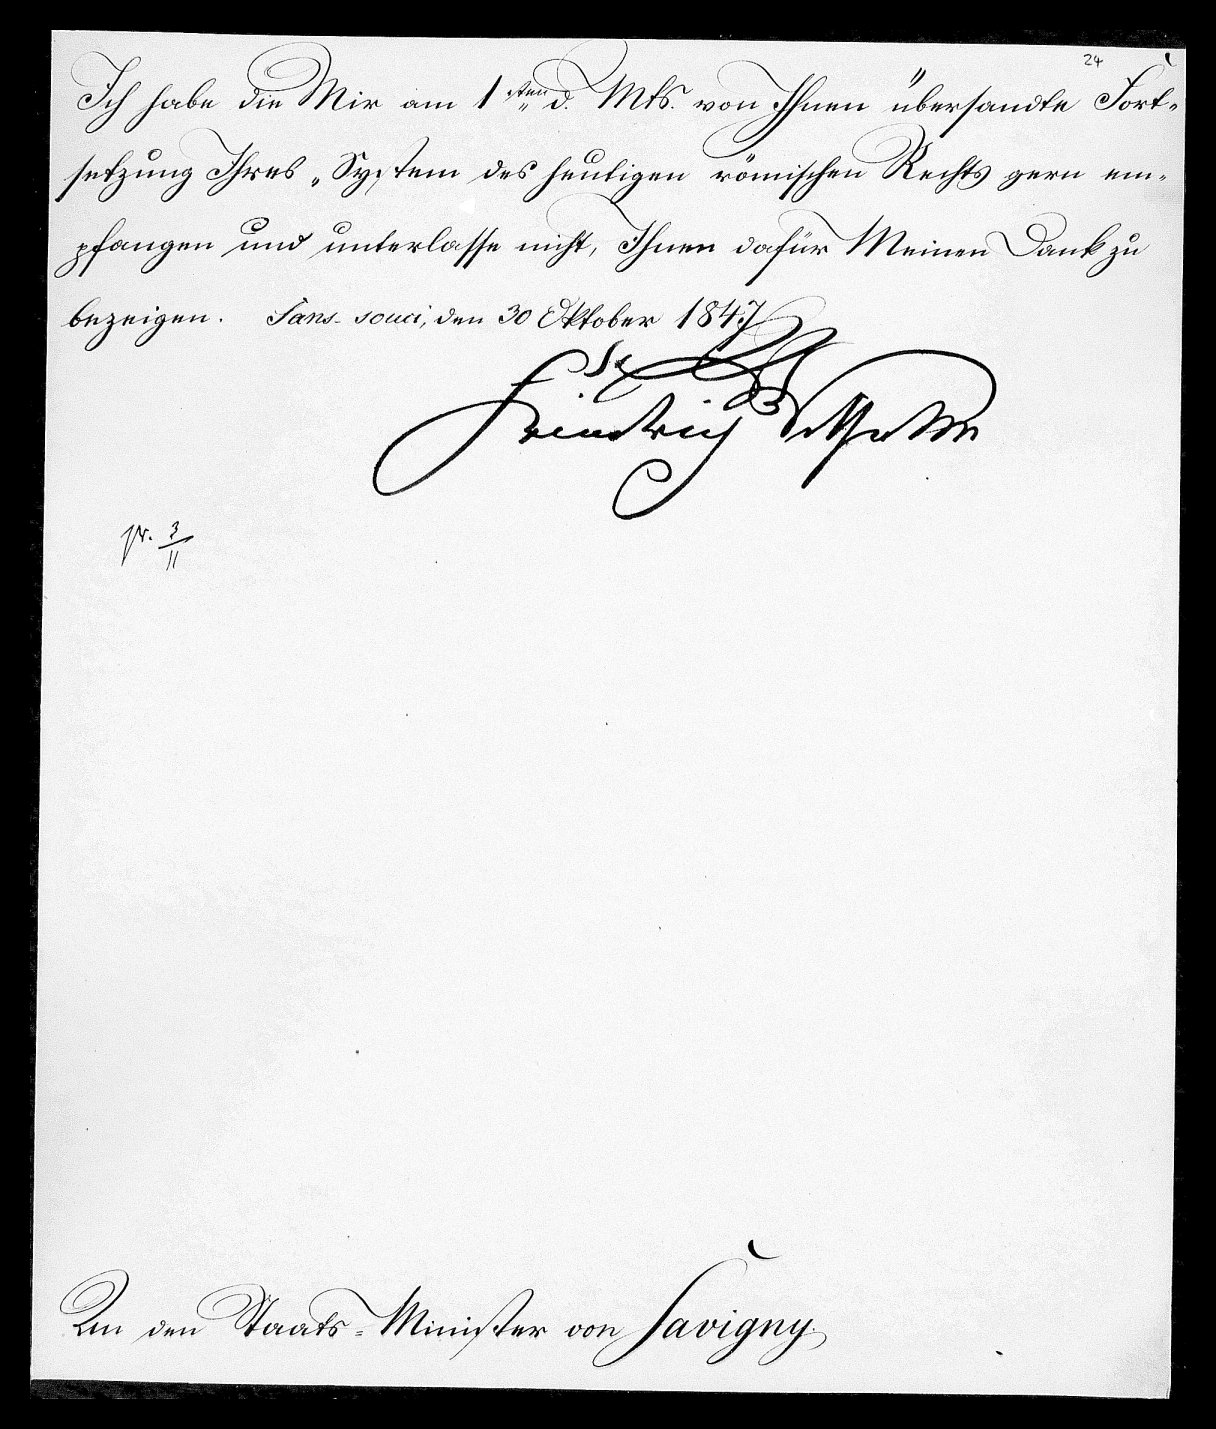 24
Ich habe die Mir am 1sten d. Mts. von Ihnen übersandte Fort-
setzung Ihres „System des heutigen römischen Rechts gern em-
pfangen und unterlasse nicht, Ihnen dafür Meinen Dank zu
bezeigen. Sans-souci, den 30 Oktober 1847
Friedrich Wilhelm
pr. 3/11
An den Staats-Minister von Savigny.